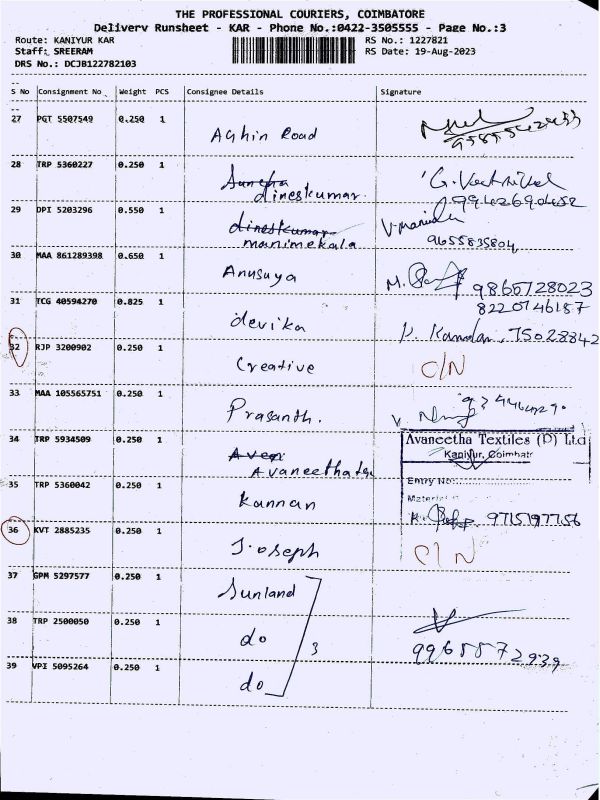 THE PROFESSIONAL COURIERS, COIMBATORE
Delivery Runsheet - KAR - Phone No.:0422-3505555 - Page No.:3
Route: KANIYUR KAR
RS No.: 1227821
Staff: SREERAM
RS Date: 19-Aug-2023
DRS No.: DCJB122782103
S No Consignment No Weight PCS Consignee Details Signature
27 PGT 5507549 0.250 1
Aghin Road
28 TRP 5360227 0.250 1
dineskumar.
9942690452
29 DPI 5203296 0.550 1
dineskumar
manimekala
9655835804
30 MAA 861289398 0.650 1
Anusuya
M.
9865728023
8220746187
31 TCG 40594270 0.825 1
devika
P. Kanndan, 75028842
32 RJP 3200902 0.250 1
Creative C/N
33 MAA 105565751 0.250 1
Prasanth.
V.
34 TRP 5934509 0.250 1
Aven
Avaneetha tex
Avaneetha Textiles (P) Ltd
Kaniyur, Coimbatr
Entry No:
35 TRP 5360042 0.250 1
Kannan
K. 9715197756
36 KVT 2885235 0.250 1
Joseph C/N
37 GPM 5297577 0.250 1
Sunland
38 TRP 2500050 0.250 1
do 3
9965572939
39 VPI 5095264 0.250 1
do